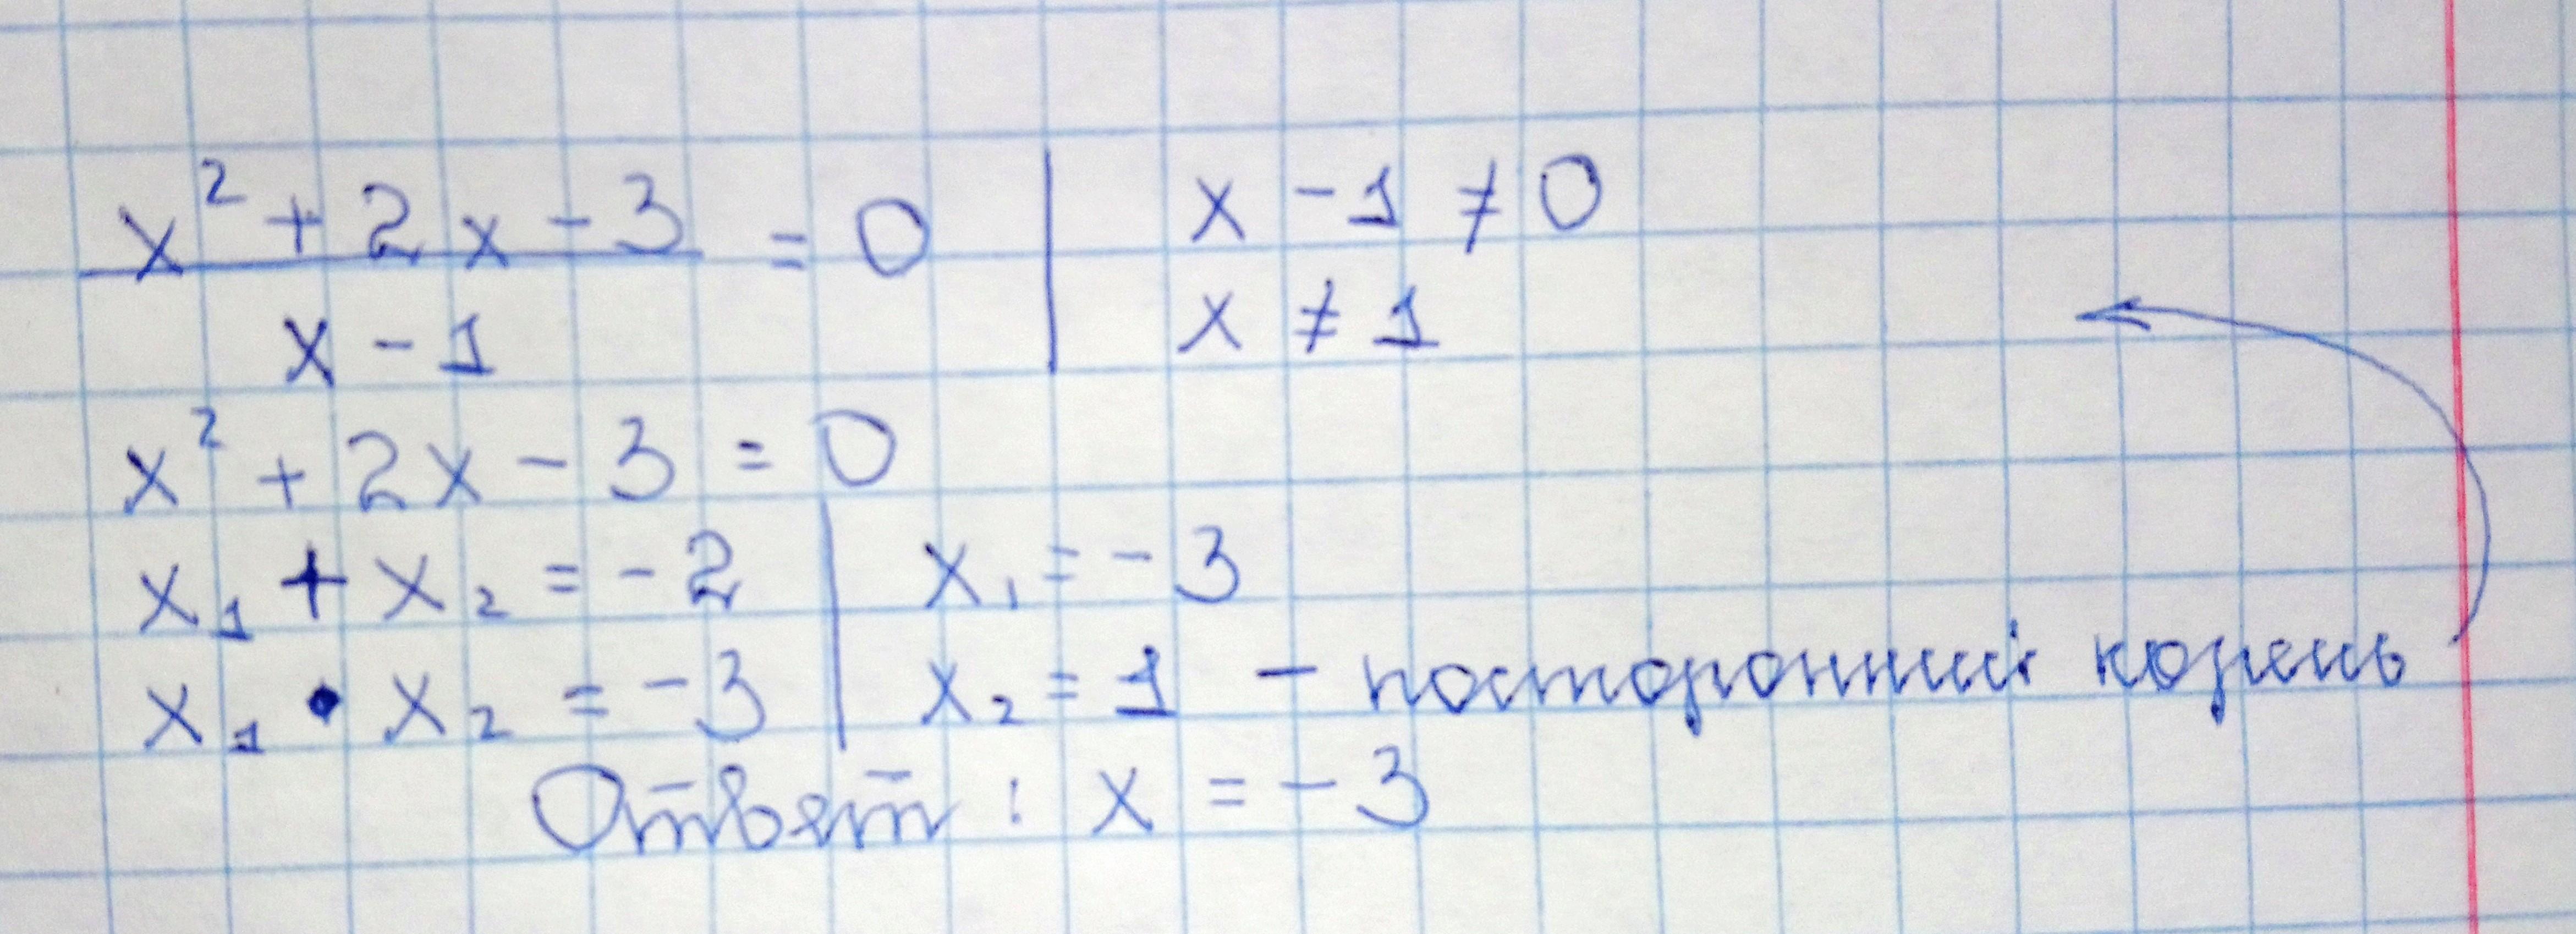 x² + 2x - 3 / x - 1 = 0 | x - 1 ≠ 0
x ≠ 1
x² + 2x - 3 = 0
x₁ + x₂ = -2 | x₁ = -3
x₁ • x₂ = -3 | x₂ = 1 - посторонний корень
Ответ: x = -3